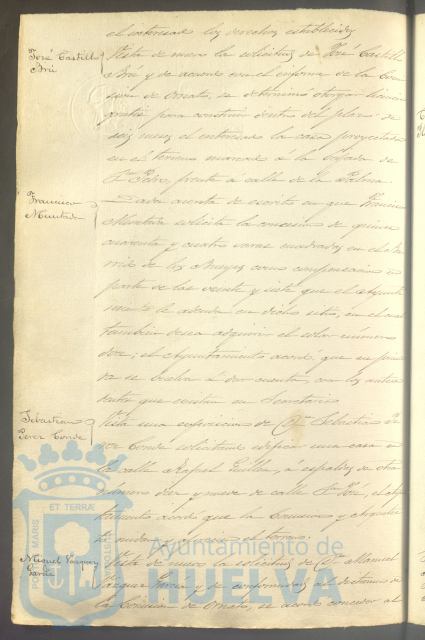 el interesado los derechos establecidos
José Castillo
Brú
Vista de nuevo la solicitud de José Castillo
Brú y de acuerdo con el informe de la Comi
sión de Ornato, se determinó otorgar licencia
gratis para construir dentro del plazo de
seis meses el entresuelo la casa proyectada
en el terreno marcado a la bajada de
Sn. Pedro, frente a calle de la Palma.
Francisco
Muntada
Dada cuenta de escrito en que Francisco
Muntada solicita la concesión de quince
cuarenta y cuatro varas cuadradas en el
de los como compensación a
parte de las veinte y siete que el Ayunta
miento le adeuda en dicho sitio, en el cual
también desea adquirir el solar número
doce; el Ayuntamiento acordó que
se vuelva a dar cuenta, con los antece
dentes que existan en Secretaría
Sebastian
Perez Conde
Vista una exposición de Dn. Sebastián Pe
rez Conde solicitando edificar una casa en
la calle Rafael Guillen, a espaldas de otra
número diez y nueve de calle Sn. José, el Ayun
tamiento acordó que la Comisión y Arquitecto
midan y el terreno.
Miguel Vazquez
Garcia
Vista de nuevo la solicitud de Dn. Manuel
Vazquez Garcia y de conformidad al dictamen de
la Comisión de Ornato, se acordó conceder al
PORTUS MARIS
ET TERRAE
Ayuntamiento de
HUELVA